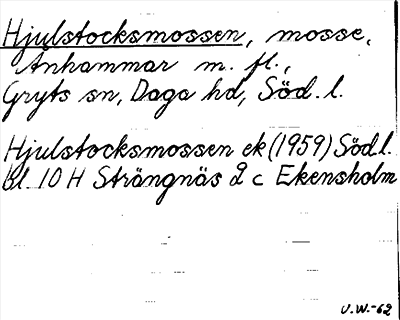 Hjulstocksmossen, mosse,
Ånhammar m. fl.,
Gryts sn, Daga hd, Söd. l.
Hjulstocksmossen ek (1959) Söd. l.
bl. 10 H Strängnäs 2 c Ekensholm
U.W.-62